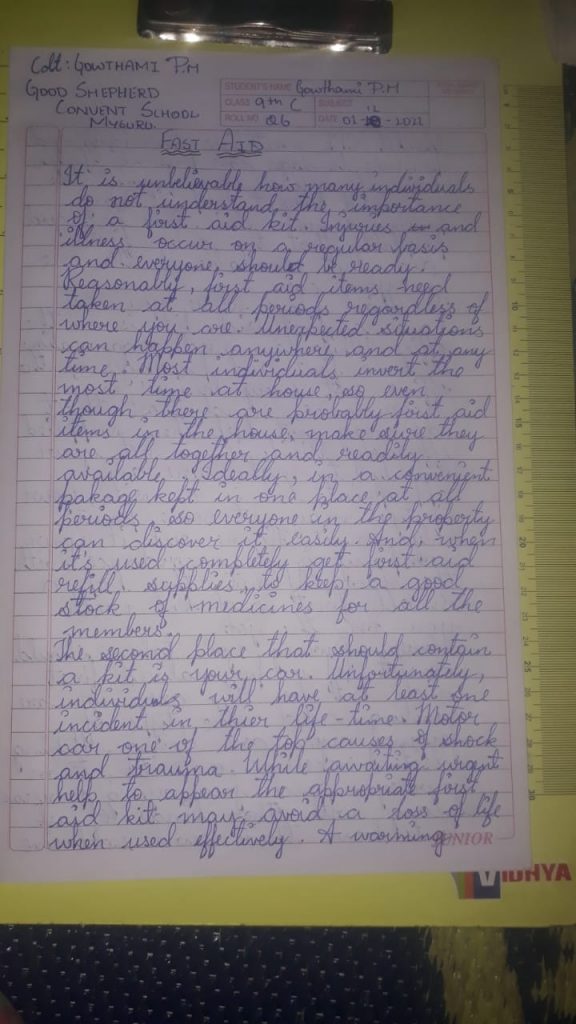 Cdt: GOWTHAMI P.M
GOOD SHEPHERD
CONVENT SCHOOL
MYSURU.
STUDENT'S NAME Gowthami P.M
CLASS 9th C SUBJECT
ROLL NO 26 DATE -2021
FAST AID
It is unbelievable how many individuals
do not understand the importance
of a first aid kit. Injuries and
illness occur on a regular basis
and everyone should be ready.
Reasonably, first aid items need
taken at all periods regardless of
where you are. Unexpected situations
can happen anywhere and at any
time. Most individuals invert the
most time at house, so even
though there are probably first aid
items in the house, make sure they
are all together and readily
available. Ideally, in a convenient
pakage kept in one place at all
periods so everyone in the property
can discover it easily. And, when
it's used completely get first aid
refill supplies to keep a good
stock of medicines for all the
members.
The second place that should contain
a kit is your car. Unfortunately,
individuals will have at least one
incident in thier life-time. Motor
car one of the top causes of shock
and trauma. While awaiting urgent
help to appear the appropriate first
aid kit may avoid a loss of life
when used effectively. A warming
JUNIOR
VIDHYA